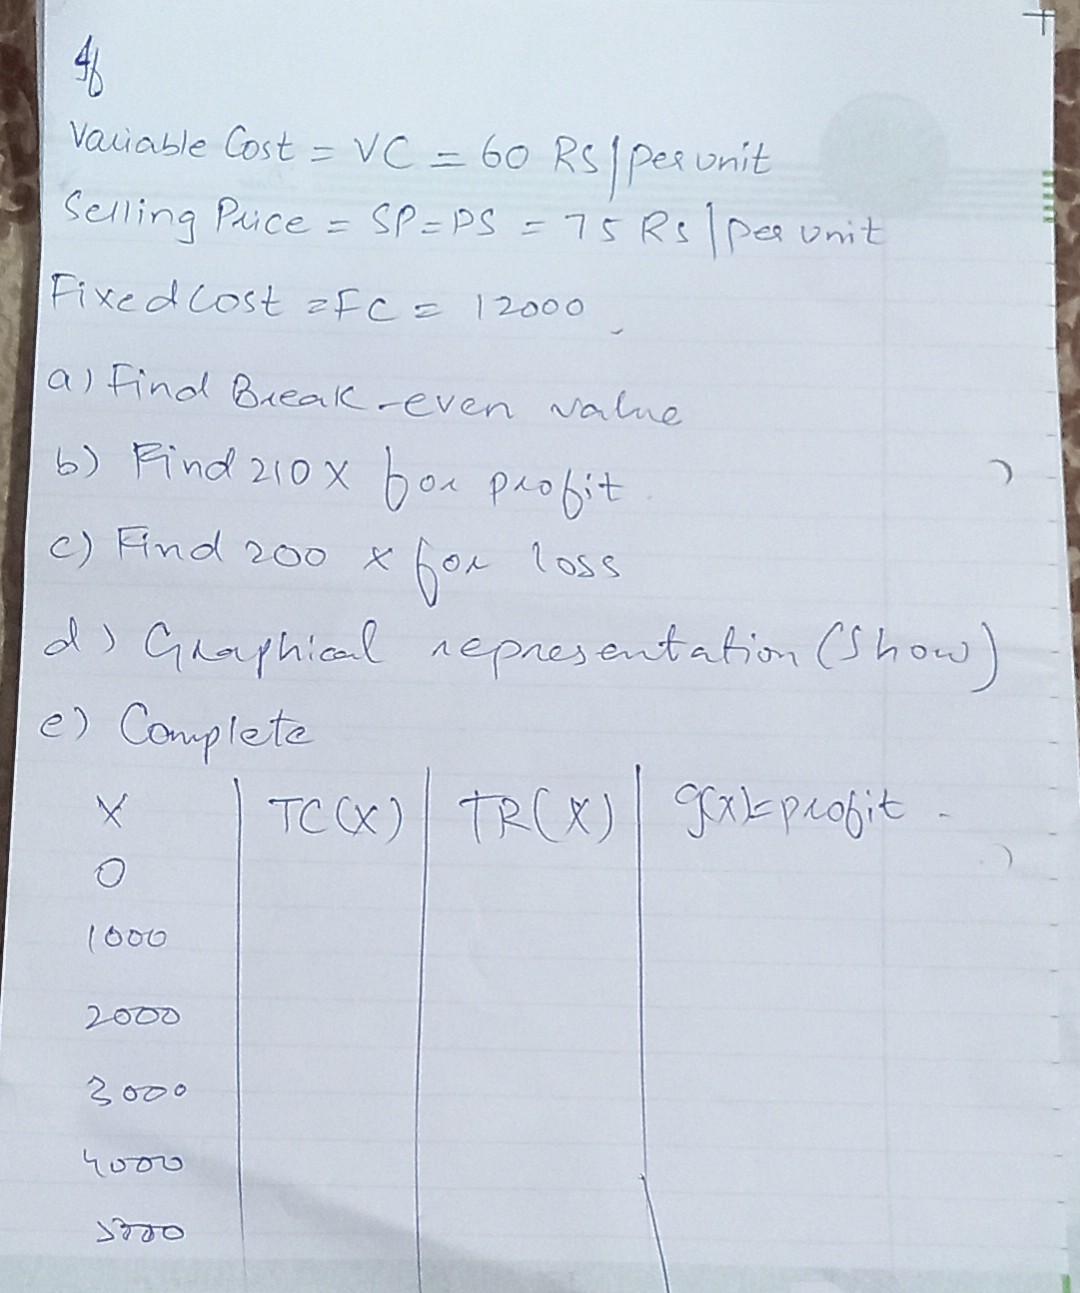 If
Variable Cost = VC = 60 RS/per unit
Selling Price = SP=PS = 75 Rs/per unit
Fixed Cost = FC = 12000
a) Find Break-even value
b) Find 210 X for profit
c) Find 200 x for loss
d) Graphical representation (Show)
e) Complete
X | TC(X) | TR(X) | g(x)=profit
0
1000
2000
3000
4000
5000